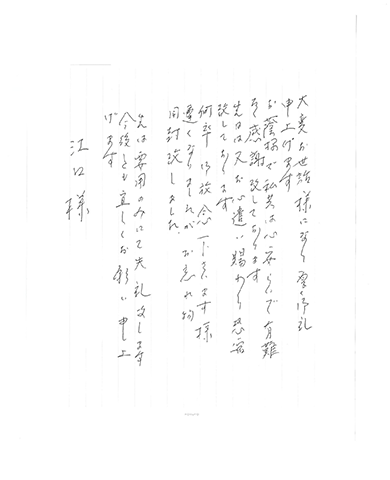 大変お世話様になり厚く御礼
申上げます
お蔭様で私共は心安らいで有難
く感謝致しております
先日は又お心遣い賜わり恐縮
致しております
何卒御放念下さいます様
遅くなりましたが お忘れ物
同封致しました
先は要用のみにて失礼致します
今後とも宜しくお願い申し上
げます
江口様